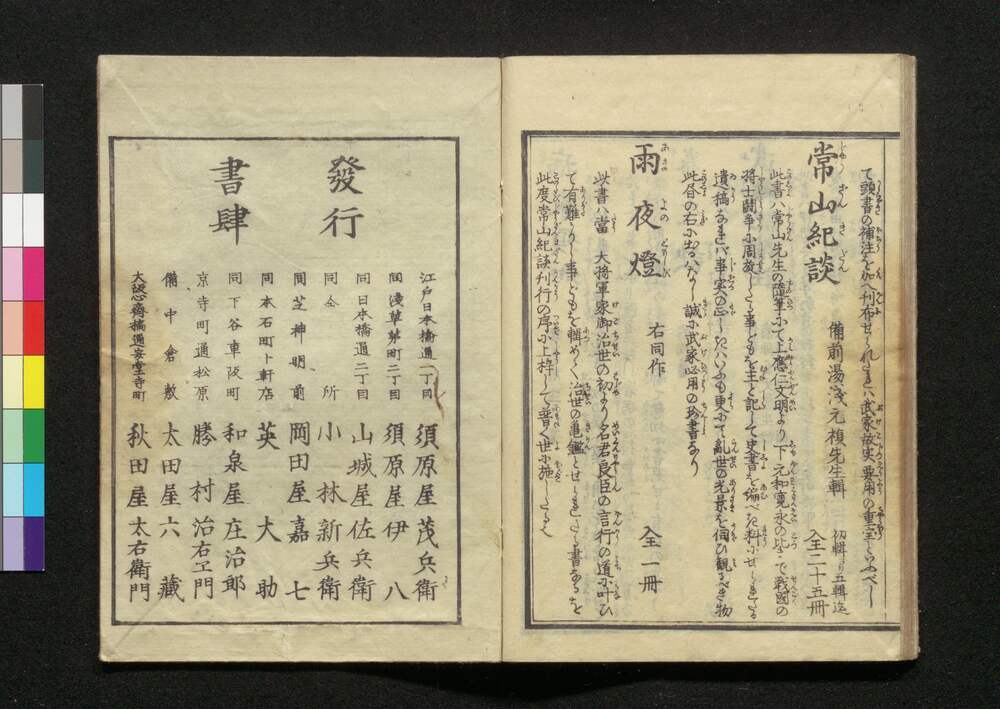 て頭書の補注を加へ刊布せられたれバ武家故実要用の重宝といふべし
常山紀談
備前湯浅元禎先生輯
初輯ヨリ五輯迄
全二十五冊
此書ハ常山先生の随筆にて上應仁文明より下元和寛永の比まで戦国の
将士闘争に周旋したる事どもを主と記して史書を編べき料にせられたる
遺稿なれバ事実の正しきハいふも更にて乱世の光景を伺ひ観るべき物
此昏の右に出るハなし誠に武家必用の珍書なり
雨夜燈
右同作
全一冊
此書ハ當大将軍家御治世の初より名君良臣の言行の道に叶ひ
て有難かりし事どもを輯めて治世の亀鑑とせられたる書なるを
此度常山紀談刊行の序に上梓して普く世に施したるなり
發行
書肆
江戸日本橋通一丁目 須原屋茂兵衛
同浅草茅町二丁目 須原屋伊八
同日本橋通二丁目 山城屋佐兵衛
同仝所 小林新兵衛
同芝神明前 岡田屋嘉七
同本石町十軒店 英大助
同下谷車阪町 和泉屋庄治郎
京寺町通松原 勝村治右エ門
備中倉敷 太田屋六藏
大阪心斎橋通安堂寺町 秋田屋太右衛門